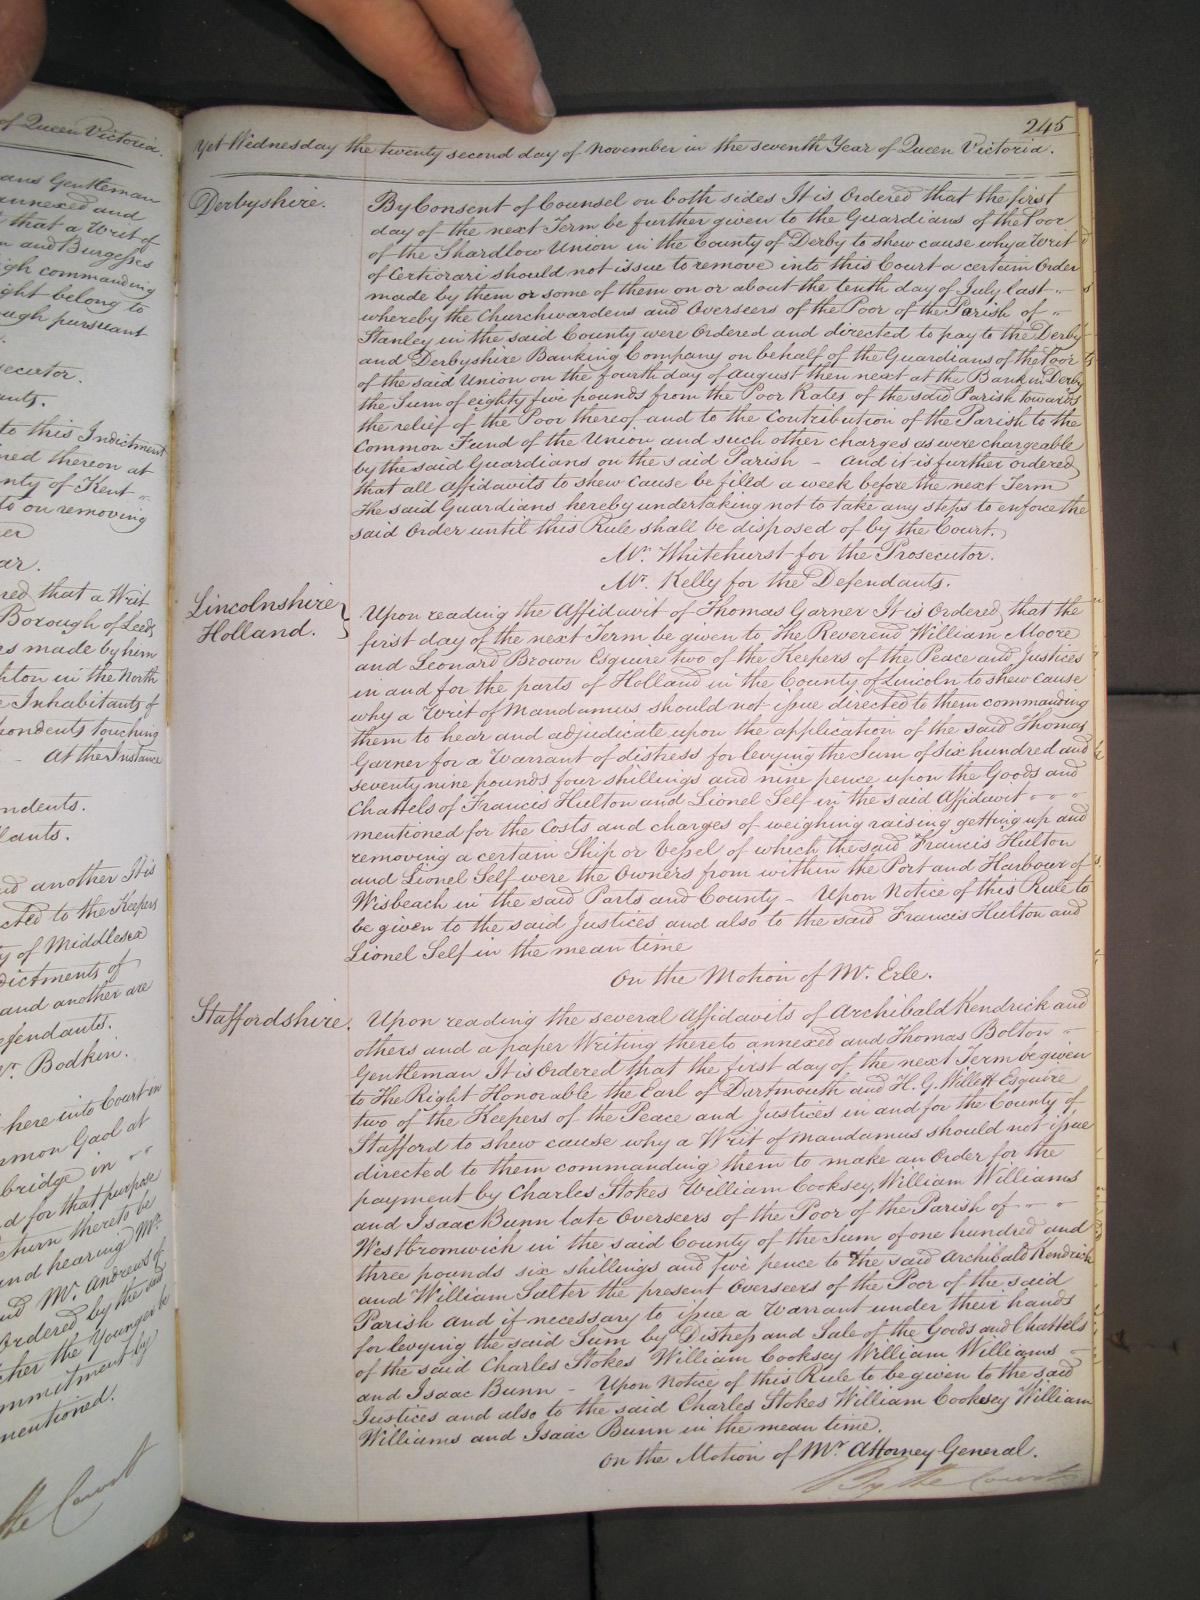 of Queen Victoria.
ans Gentleman
annexed and
that a Writ of
and Burgesses
commanding
ght belong to
ough pursuant
ecutor.
ants.
to this Indictment
ned thereon at
nty of Kent
to on removing
ar.
red that a Writ
Borough of Leeds
s made by him
in the North
Inhabitants of
pondents touching
At the Instance
ndents.
lants.
and another It is
cted to the Keepers
ty of Middlesex
dictments of
and another are
efendants.
Mr. Bodkin.
here into Court in
mmon Gaol at
bridge in
d for that purpose
eturn thereto be
and hearing Mr.
and Mr. Andrews of
Ordered by the said
ther the Younger be
mmitment by
mentioned.
the Court
245
Yet Wednesday the twenty second day of November in the seventh Year of Queen Victoria.
Derbyshire.
By Consent of Counsel on both sides It is Ordered that the first
day of the next Term be further given to the Guardians of the Poor
of the Shardlow Union in the County of Derby to shew cause why a Writ
of Certiorari should not issue to remove into this Court a certain Order
made by them or some of them on or about the tenth day of July last
whereby the Churchwardens and Overseers of the Poor of the Parish of
Stanley in the said County were Ordered and directed to pay to the Derby
and Derbyshire Banking Company on behalf of the Guardians of the Poor
of the said Union on the fourth day of August then next at the Bank in Derby
the Sum of eighty five pounds from the Poor Rates of the said Parish towards
the relief of the Poor thereof and to the Contribution of the Parish to the
Common Fund of the Union and such other charges as were chargeable
by the said Guardians on the said Parish – And it is further ordered
that all Affidavits to shew cause be filed a week before the next Term
The said Guardians hereby undertaking not to take any steps to enforce the
said Order until this Rule shall be disposed of by the Court.
Mr. Whitehurst for the Prosecutor.
Mr. Kelly for the Defendants.
Lincolnshire
Holland.
Upon reading the Affidavit of Thomas Garner It is Ordered that the
first day of the next Term be given to The Reverend William Moore
and Leonard Brown Esquire two of the Keepers of the Peace and Justices
in and for the parts of Holland in the County of Lincoln to shew cause
why a Writ of Mandamus should not issue directed to them commanding
them to hear and adjudicate upon the application of the said Thomas
Garner for a Warrant of distress for levying the Sum of Six hundred and
seventy nine pounds four shillings and nine pence upon the Goods and
Chattels of Francis Hulton and Lionel Self in the said Affidavit
mentioned for the Costs and charges of weighing raising getting up and
removing a certain Ship or Vessel of which the said Francis Hulton
and Lionel Self were the Owners from within the Port and Harbour of
Wisbeach in the said Parts and County – Upon Notice of this Rule to
be given to the said Justices and also to the said Francis Hulton and
Lionel Self in the mean time
On the Motion of Mr. Erle.
Staffordshire.
Upon reading the several Affidavits of Archibald Kendrick and
others and a paper Writing thereto annexed and Thomas Bolton
Gentleman It is Ordered that the first day of the next Term be given
to The Right Honorable the Earl of Dartmouth and H. G. Willett Esquire
two of the Keepers of the Peace and Justices in and for the County of
Stafford to shew cause why a Writ of Mandamus should not issue
directed to them commanding them to make an Order for the
payment by Charles Stokes William Cooksey, William Williams
and Isaac Bunn late Overseers of the Poor of the Parish of
Westbromwich in the said County of the Sum of one hundred and
three pounds six shillings and five pence to the said Archibald Kendrick
and William Salter the present Overseers of the Poor of the said
Parish And if necessary to issue a Warrant under their hands
for levying the said Sum by Distress and Sale of the Goods and Chattels
of the said Charles Stokes William Cooksey William Williams
and Isaac Bunn – Upon Notice of this Rule to be given to the said
Justices and also to the said Charles Stokes William Cooksey William
Williams and Isaac Bunn in the mean time.
On the Motion of Mr Attorney General.
By the Court